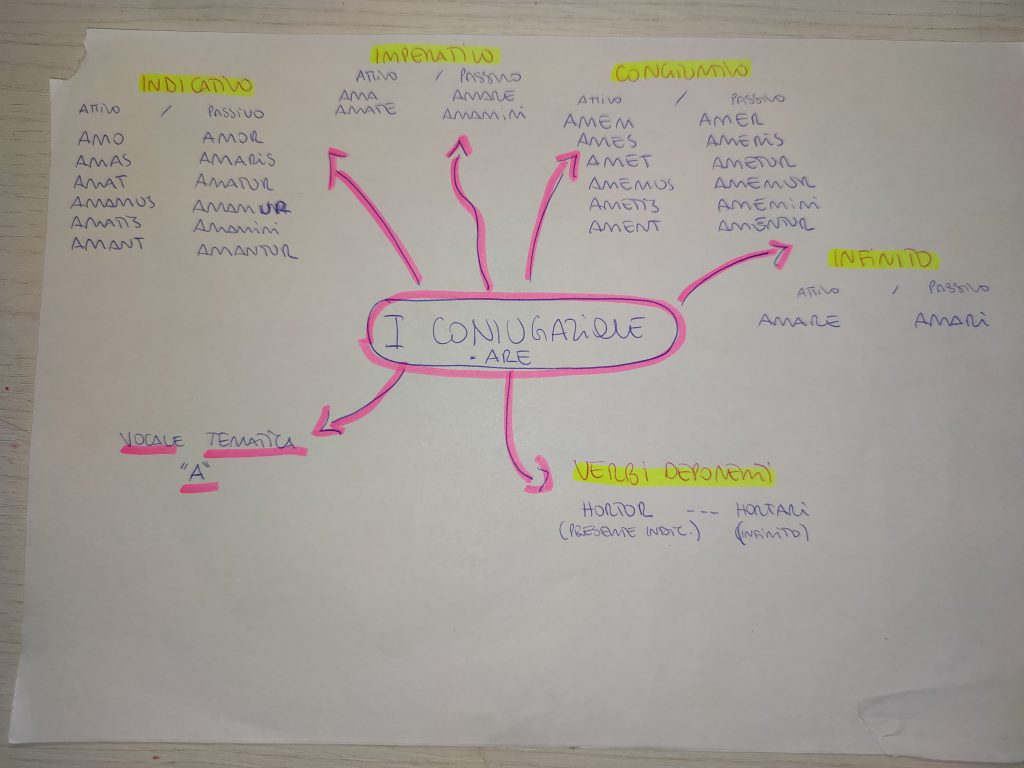 INDICATIVO
ATTIVO / PASSIVO
AMO AMOR
AMAS AMARIS
AMAT AMATUR
AMAMUS AMAMUR
AMATIS AMAMINI
AMANT AMANTUR
IMPERATIVO
ATTIVO / PASSIVO
AMA AMARE
AMATE AMAMINI
CONGIUNTIVO
ATTIVO / PASSIVO
AMEM AMER
AMES AMERIS
AMET AMETUR
AMEMUS AMEMUR
AMETIS AMEMINI
AMENT AMENTUR
INFINITO
ATTIVO / PASSIVO
AMARE AMARI
I CONIUGAZIONE
-ARE
VOCALE TEMATICA
"A"
VERBI DEPONENTI
HORTOR --- HORTARI
(PRESENTE INDIC.) (INFINITO)